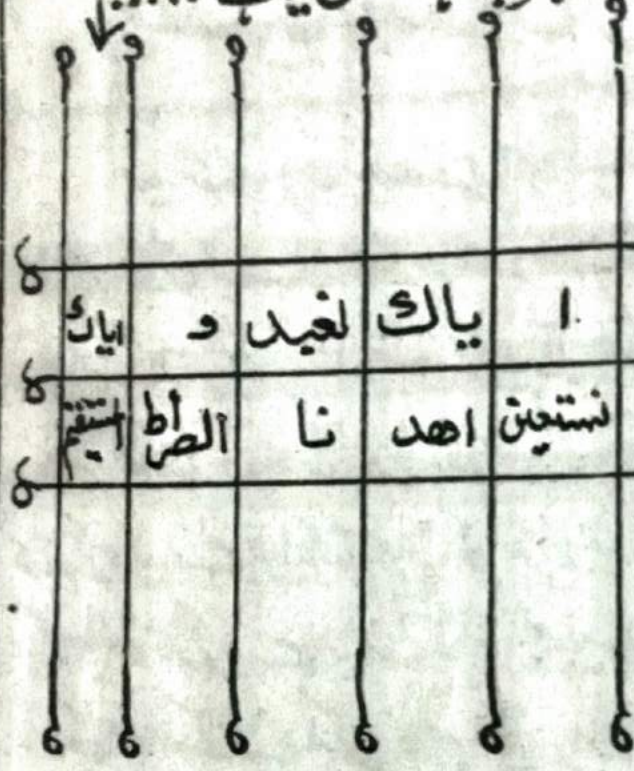 ا ياك لغيد و اياك
نستعين اهد نا الصراط المستقيم